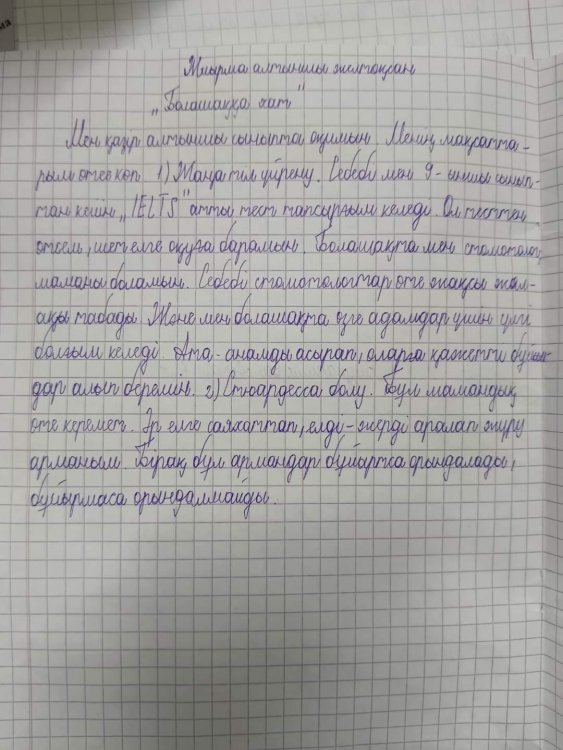 Жиырма алтыншы желтоқсан
„Болашаққа хат"
Мен қазір алтыншы сыныпта оқимын. Менің мақсатта-
рым өте көп. 1) Жаңа тіл үйрену. Себебі мен 9-ыншы сынып-
тан кейін „IELTS" атты тест тапсырғым келеді. Ол тесттен
өтсем, шет елге оқуға барамын. Болашақта мен стоматолог
маманы боламын. Себебі стоматологтар өте жақсы жал-
ақы табады. Және мен болашақта өзге адамдар үшін үлгі
болғым келеді. Ата-анамды асырап, оларға қажетті бұйым-
дар алып беремін. 2) Стюардесса болу. Бұл мамандық
өте керемет. Әр елге саяхаттап, елді-жерді аралап жүру
арманым. Бірақ бұл армандар бұйыртса орындалады,
бұйырмаса орындалмайды.